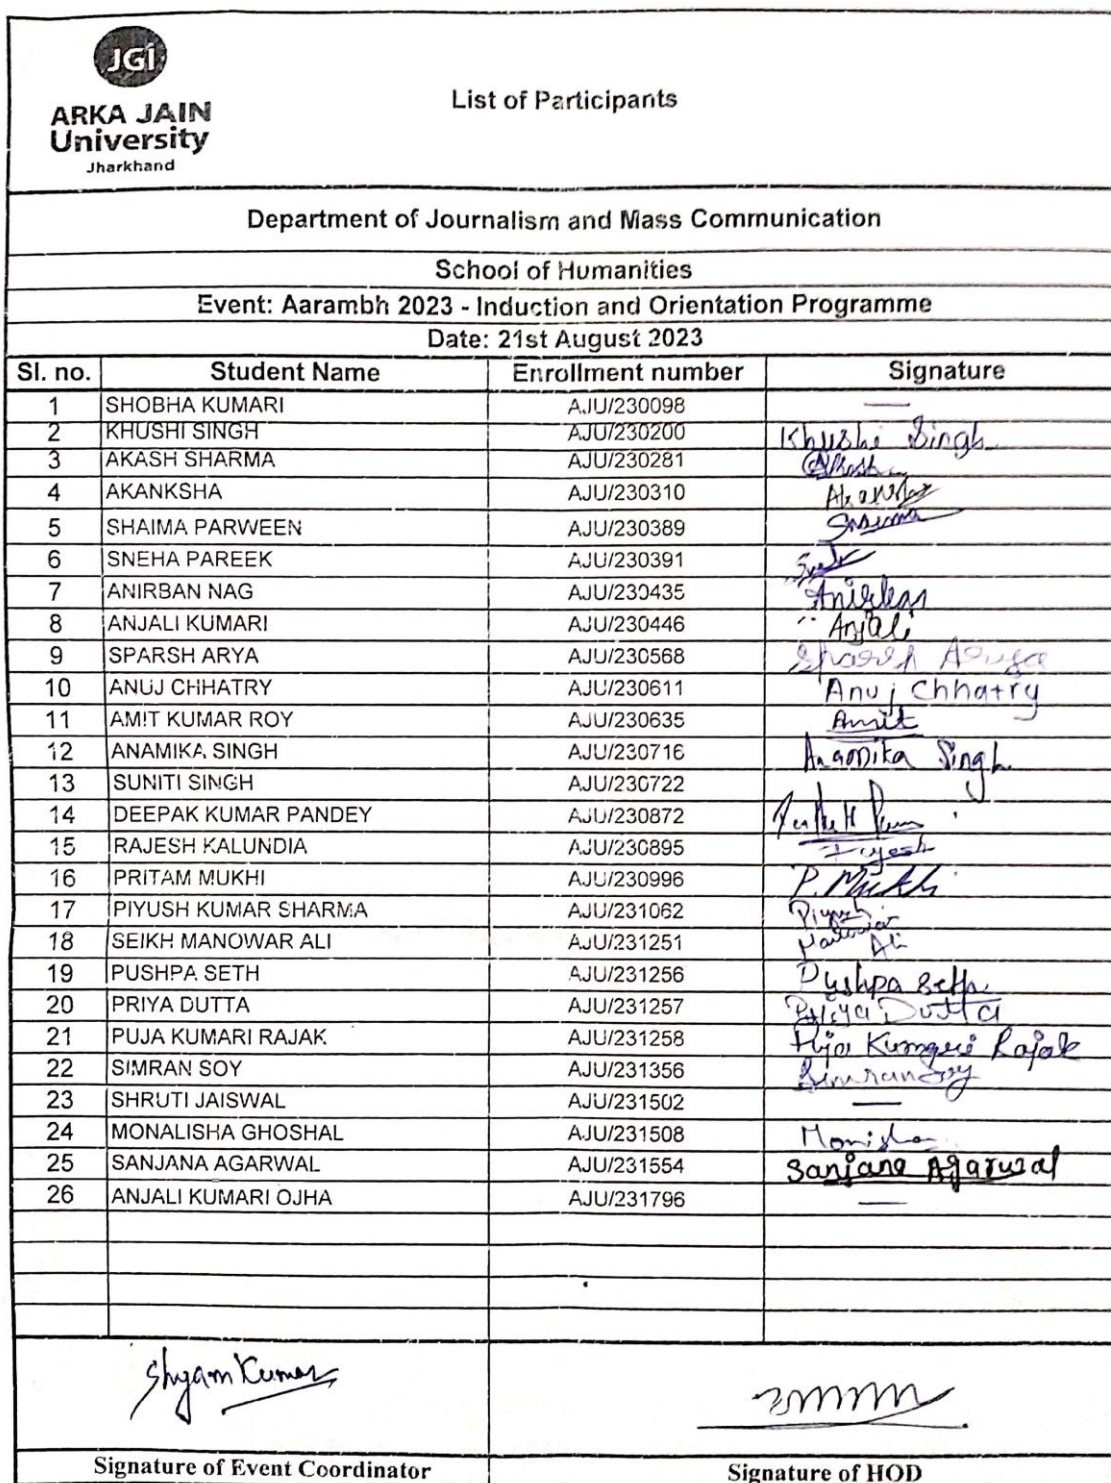 JGi
ARKA JAIN
University
Jharkhand
List of Participants
Department of Journalism and Mass Communication
School of Humanities
Event: Aarambh 2023 - Induction and Orientation Programme
Date: 21st August 2023
Sl. no. Student Name Enrollment number Signature
1 SHOBHA KUMARI AJU/230098 —
2 KHUSHI SINGH AJU/230200 Khushi Singh
3 AKASH SHARMA AJU/230281 Akash
4 AKANKSHA AJU/230310
5 SHAIMA PARWEEN AJU/230389
6 SNEHA PAREEK AJU/230391
7 ANIRBAN NAG AJU/230435 Anirban
8 ANJALI KUMARI AJU/230446 Anjali
9 SPARSH ARYA AJU/230568 Sparsh Arya
10 ANUJ CHHATRY AJU/230611 Anuj Chhatry
11 AMIT KUMAR ROY AJU/230635 Amit
12 ANAMIKA SINGH AJU/230716 Anamika Singh
13 SUNITI SINGH AJU/230722
14 DEEPAK KUMAR PANDEY AJU/230872
15 RAJESH KALUNDIA AJU/230895
16 PRITAM MUKHI AJU/230996 P. Mukhi
17 PIYUSH KUMAR SHARMA AJU/231062 Piyush
18 SEIKH MANOWAR ALI AJU/231251 Manowar Ali
19 PUSHPA SETH AJU/231256 Pushpa Seth
20 PRIYA DUTTA AJU/231257 Priya Dutta
21 PUJA KUMARI RAJAK AJU/231258 Puja Kumari Rajak
22 SIMRAN SOY AJU/231356 Simran Soy
23 SHRUTI JAISWAL AJU/231502 —
24 MONALISHA GHOSHAL AJU/231508
25 SANJANA AGARWAL AJU/231554 Sanjana Agarwal
26 ANJALI KUMARI OJHA AJU/231796 —
Shyam Kumar
Signature of Event Coordinator Signature of HOD